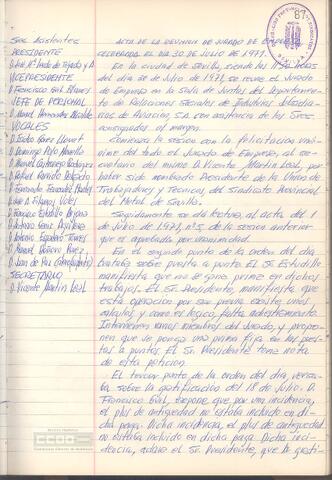 87
Sres. Asistentes
PRESIDENTE
VICEPRESIDENTE
D. Francisco Gil Blanes
JEFE DE PERSONAL
D. Manuel Hernández Alcalde
VOCALES
D. Manuel Contreras Rodríguez
D. Rafael Ramírez Delgado
D. Fernando Fernández
D. Antonio Sanz Aguilera
D. Antonio Espadero Torres
SECRETARIO
D. Vicente Martín Leal
ACTA DE LA REUNION DE JURADO DE EMPRESA
CELEBRADA EL DIA 30 DE JULIO DE 1971.
En la ciudad de Sevilla, siendo las horas
del día 30 de Julio de 1971, se reune el Jurado
de Empresa en la Sala de Juntas del Departamen-
to de Relaciones Sociales de Industrias Subsidia-
rias de Aviación, S.A. con asistencia de los Sres.
consignados al margen.
Comienza la sesión con la felicitación uná-
nime del pleno del Jurado de Empresa, al se-
cretario del mismo D. Vicente Martín Leal, por
haber sido nombrado Presidente de la Unión de
Trabajadores y Técnicos del Sindicato Provincial
del Metal de Sevilla.
Seguidamente se da lectura, al acta del 1
de Julio de 1971, nº 5, de la sesión anterior
que es aprobada por unanimidad.
En el segundo punto de la orden del día
tratado sobre puesta a punto El Sr. Estudillo
manifiesta que no se gana prima en dichos
trabajos. El Sr. Presidente, manifiesta que
esta operación por su previa exige, unos
cálculos y como es lógico, falta adiestramiento.
Intervienen varios miembros del Jurado, y propo-
nen que se ponga una prima fija en las pues-
tas a puntos El Sr. Presidente toma nota
de esta petición.
El tercer punto de la orden del día, versa-
ba sobre la gratificación del 18 de Julio. D.
Francisco Gil, expone que por una incidencia,
el plus de antigüedad no estaba incluido en di-
cha paga. Dicha incidencia, el plus de antigüedad
no estaba incluido en dicha paga Dicha inci-
dencia, aclara el Sr. Presidente, que la grati-
ARCHIVO HISTÓRICO
CCOO
Comisiones Obreras de Andalucía